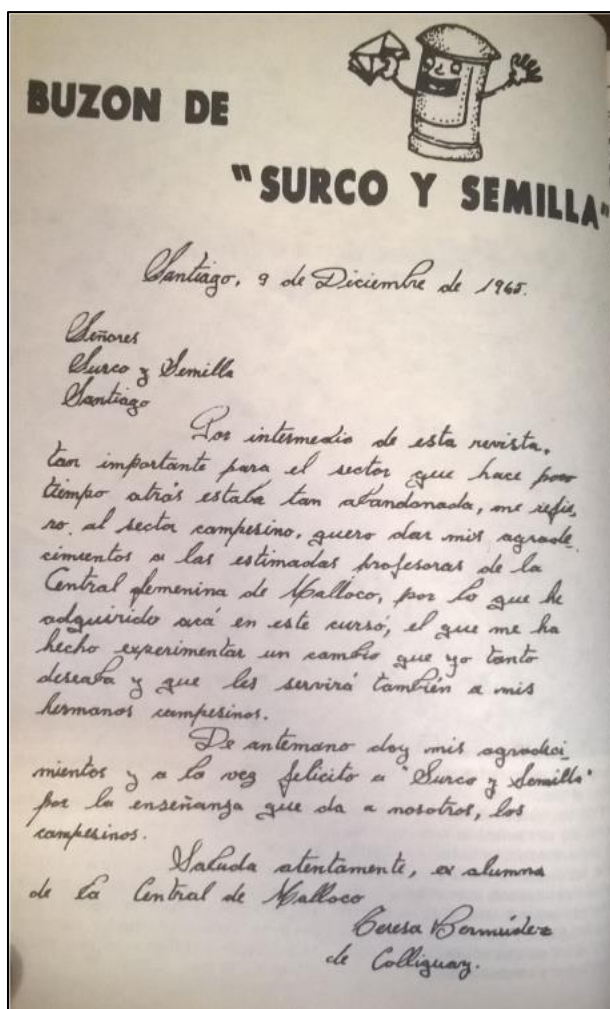 BUZON DE
"SURCO Y SEMILLA"
Santiago, 9 de Diciembre de 1965.
Señores
Surco y Semilla
Santiago
Por intermedio de esta revista,
tan importante para el sector que hace poco
tiempo atrás estaba tan abandonada, me refie,
ro al sector campesino, quero dar mis agrade.
cimientos a las estimadas profesoras de la
Central femenina de Malloco, por lo que he
adquirido acá en este curso, el que me ha
hecho experimentar un cambio que yo tanto
deseaba y que les servirá también a mis
hermanos campesinos.
De antemano doy mis agradeci-
mientos y a la vez felicito a "Surco y Semilla"
por la enseñanza que da a nosotros, los
campesinos.
Saluda atentamente, ex alumna
de la Central de Malloco
Teresa Bermúdez
de Colliguay.